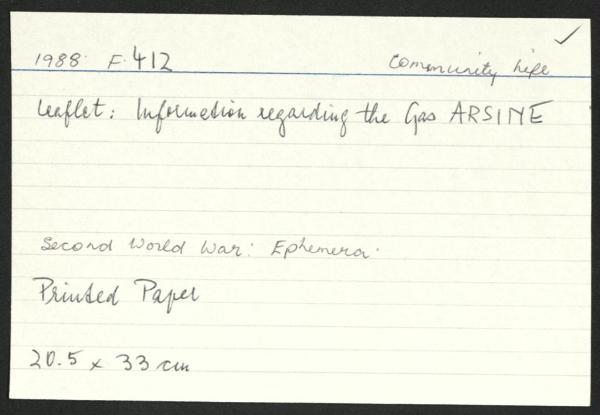 1988. F. 412 Community Life
Leaflet: Information regarding the Gas ARSINE
Second World War: Ephemera.
Printed Paper
20.5 x 33 cm